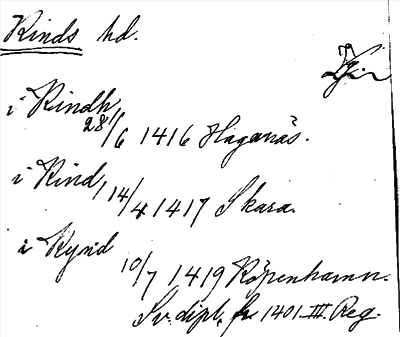 Kinds hd.
i Kindh,
28/6 1416 Haganäs.
i Kind, 14/4 1417 Skara.
i Kynd
10/7 1419 Köpenhamn.
Sv. dipl. fr 1401. III. Reg.